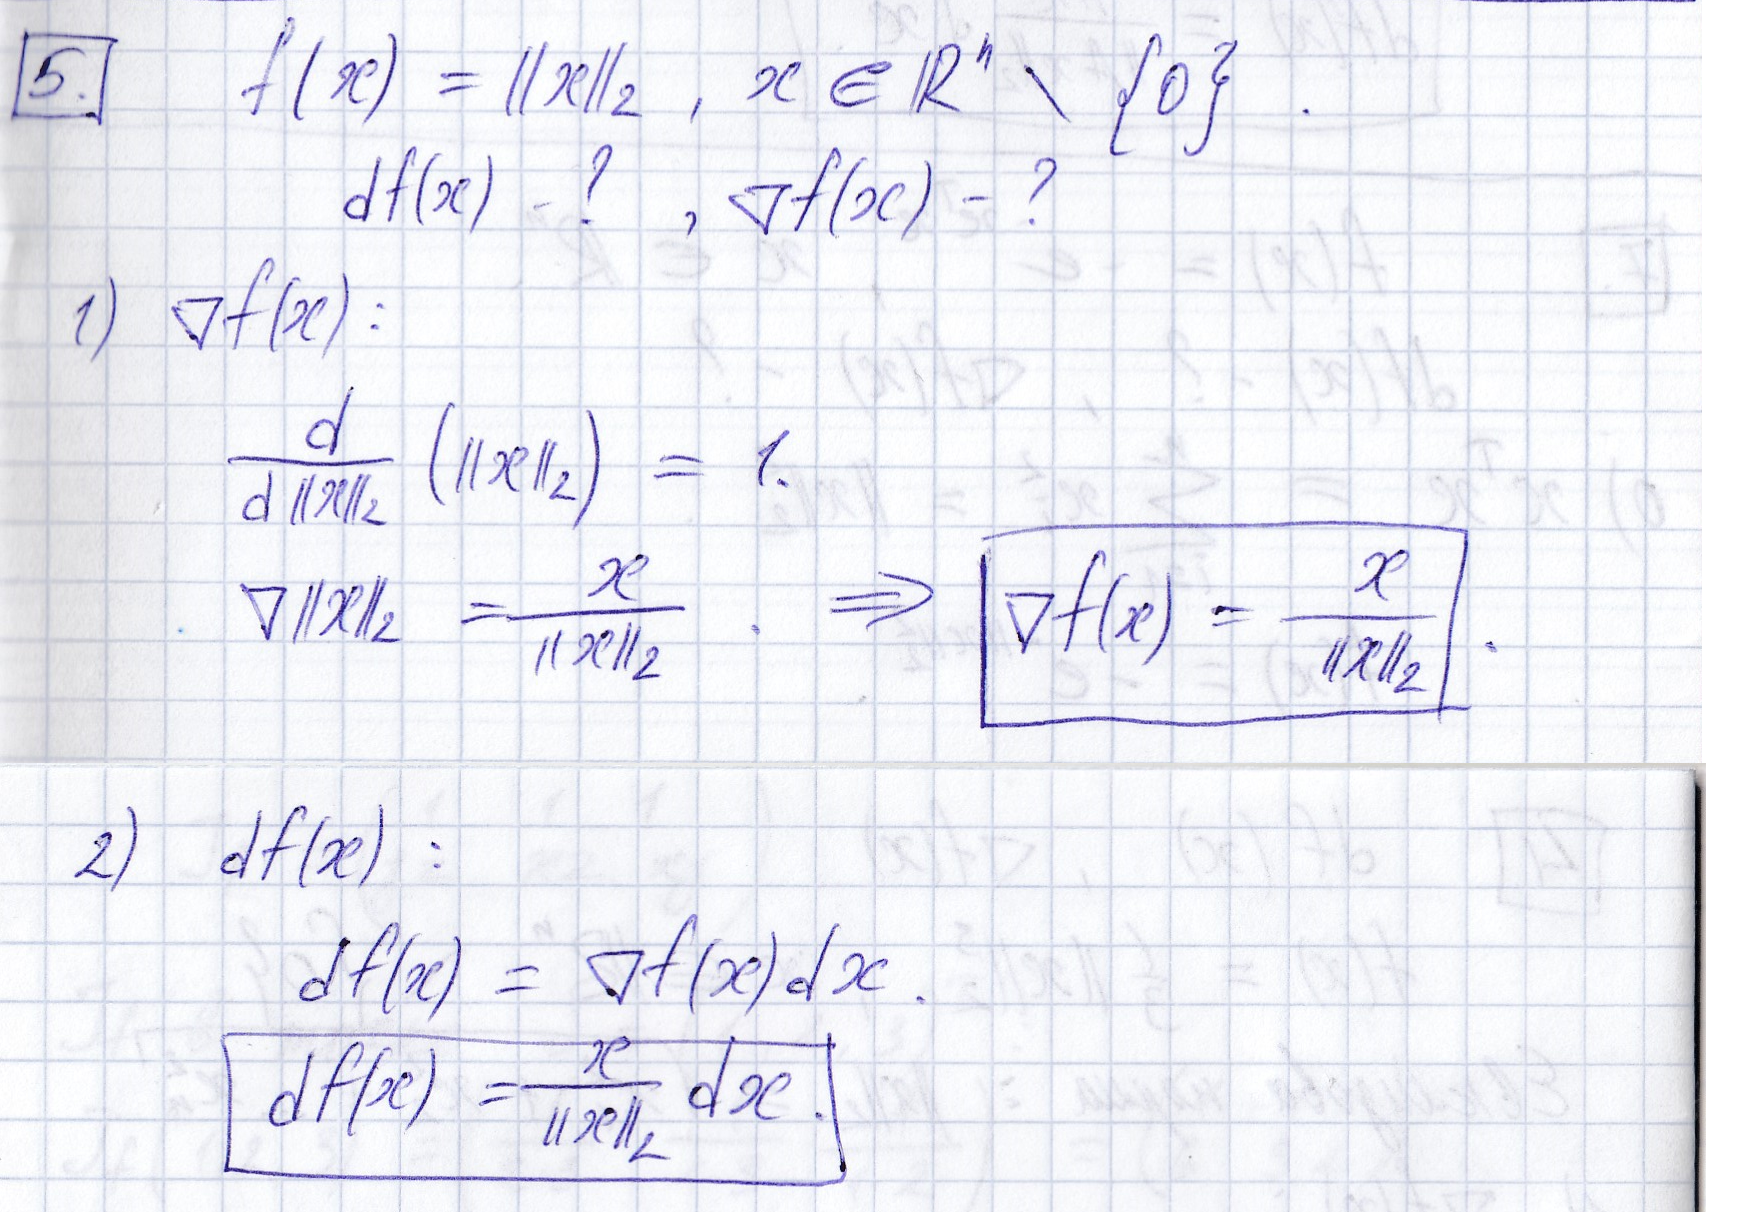 5. f(x) = ||x||₂ , x ∈ ℝⁿ \ {0} .
df(x) - ? , ∇f(x) - ?
1) ∇f(x) :
d / d||x||₂ (||x||₂) = 1.
∇||x||₂ = x / ||x||₂ . ⇒ ∇f(x) = x / ||x||₂ .
2) df(x) :
df(x) = ∇f(x) dx .
df(x) = x / ||x||₂ dx .